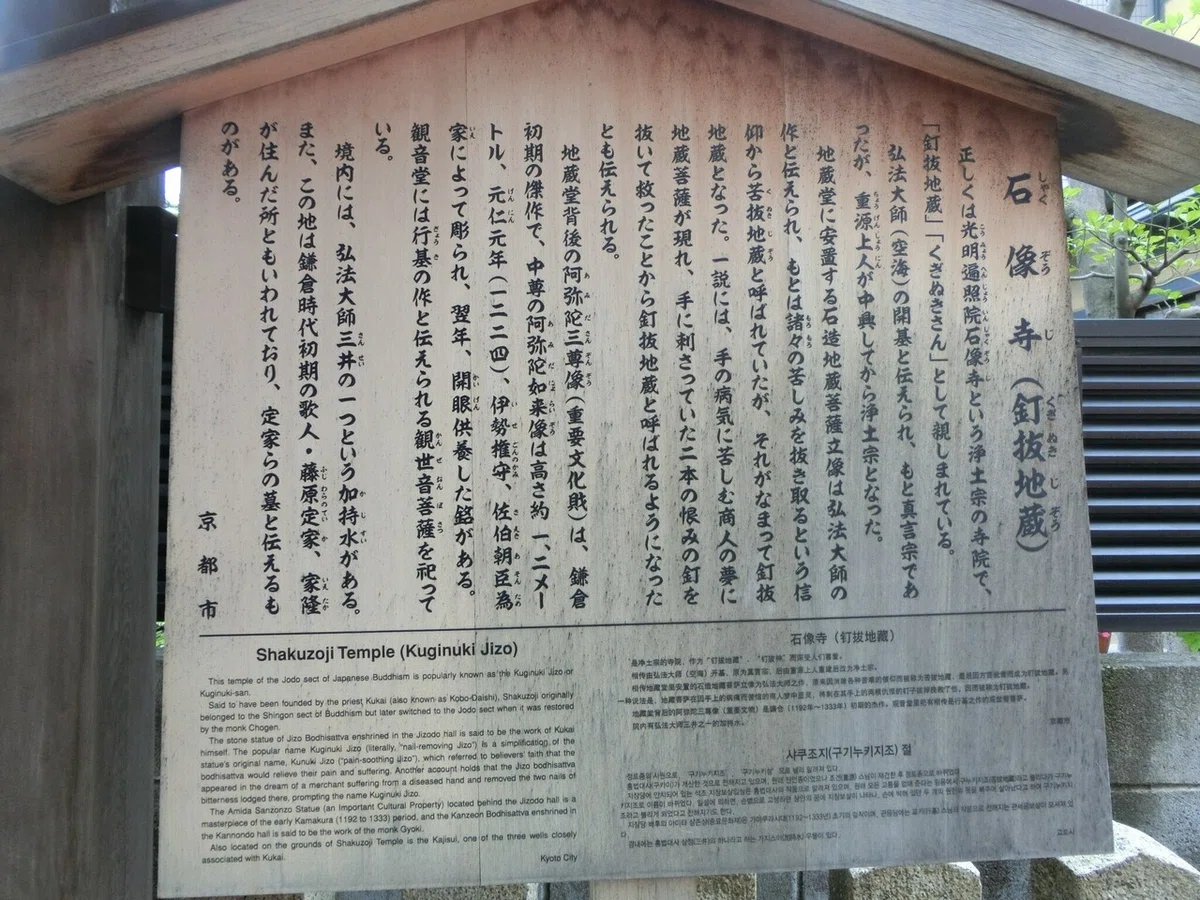 石像寺（釘抜地蔵）
正しくは光明遍照院石像寺という浄土宗の寺院で、
「釘抜地蔵」「くぎぬきさん」として親しまれている。
弘法大師（空海）の開基と伝えられ、もと真言宗であ
ったが、重源上人が中興してから浄土宗となった。
地蔵堂に安置する石造地蔵菩薩立像は弘法大師の
作と伝えられ、もとは諸々の苦しみを抜き取るという信
仰から苦抜地蔵と呼ばれていたが、それがなまって釘抜
地蔵となった。一説には、手の病気に苦しむ商人の夢に
地蔵菩薩が現れ、手に刺さっていた二本の恨みの釘を
抜いて救ったことから釘抜地蔵と呼ばれるようになった
とも伝えられる。
地蔵堂背後の阿弥陀三尊像（重要文化財）は、鎌倉
初期の傑作で、中尊の阿弥陀如来像は高さ約一、二メー
トル、元仁元年（一二二四）、伊勢権守、佐伯朝臣為
家によって彫られ、翌年、開眼供養した銘がある。
観音堂には行基の作と伝えられる観世音菩薩を祀って
いる。
境内には、弘法大師三井の一つという加持水がある。
また、この地は鎌倉時代初期の歌人・藤原定家、家隆
が住んだ所ともいわれており、定家らの墓と伝えるも
のがある。
京都市
Shakuzoji Temple (Kuginuki Jizo)
This temple of the Jodo sect of Japanese Buddhism is popularly known as the Kuginuki Jizo or
Kuginuki-san.
Said to have been founded by the priest Kukai (also known as Kobo-Daishi), Shakuzoji originally
belonged to the Shingon sect of Buddhism but later switched to the Jodo sect when it was restored
by the monk Chogen.
The stone statue of Jizo Bodhisattva enshrined in the Jizodo hall is said to be the work of Kukai
himself. The popular name Kuginuki Jizo (literally, "nail-removing Jizo") is a simplification of the
statue's original name, Kunuki Jizo ("pain-soothing Jizo"), which referred to believers' faith that the
bodhisattva would relieve their pain and suffering. Another account holds that the Jizo bodhisattva
appeared in the dream of a merchant suffering from a diseased hand and removed the two nails of
bitterness lodged there, prompting the name Kuginuki Jizo.
The Amida Sanzonzo Statue (an Important Cultural Property) located behind the Jizodo hall is a
masterpiece of the early Kamakura (1192 to 1333) period, and the Kanzeon Bodhisattva enshrined in
the Kannondo hall is said to be the work of the monk Gyoki.
Also located on the grounds of Shakuzoji Temple is the Kajisui, one of the three wells closely
associated with Kukai.
Kyoto City
石像寺（钉拔地藏）
京都市
샤쿠조지(구기누키지조) 절
교토시